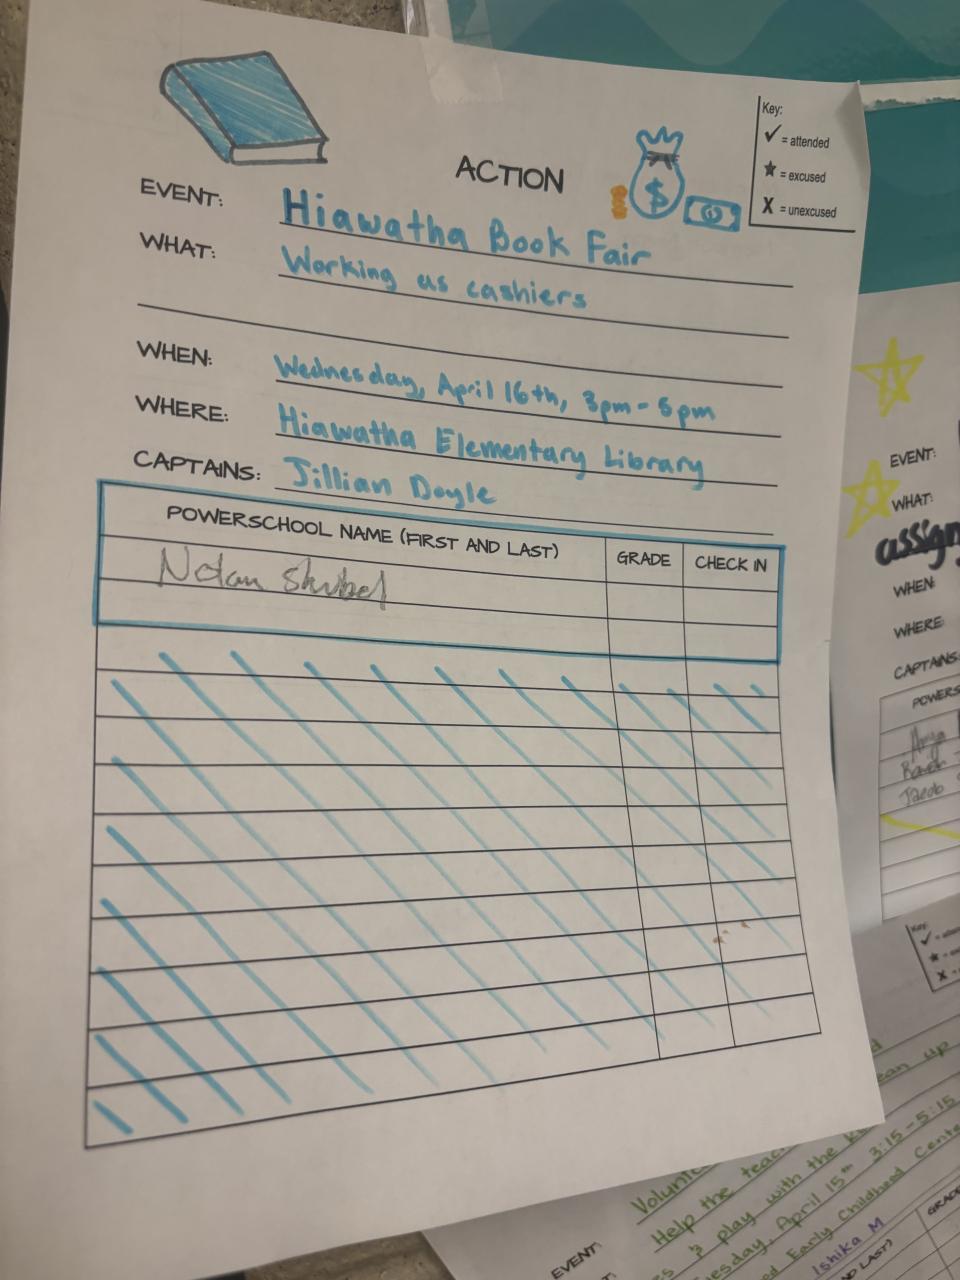 Key:
✓ = attended
★ = excused
X = unexcused
ACTION
$
EVENT: Hiawatha Book Fair
WHAT: Working as cashiers
WHEN: Wednesday, April 16th, 3pm-5pm
WHERE: Hiawatha Elementary Library
CAPTAINS: Jillian Doyle
POWERSCHOOL NAME (FIRST AND LAST) GRADE CHECK IN
Nolan
EVENT:
WHAT:
assign
WHEN:
WHERE:
CAPTAINS:
POWERS
Key:
ean up
Help the teac
& play with the
esday, April 15th 3:15-5:15
Early Childhood Cente
EVENT:
Ishika M
GRADE